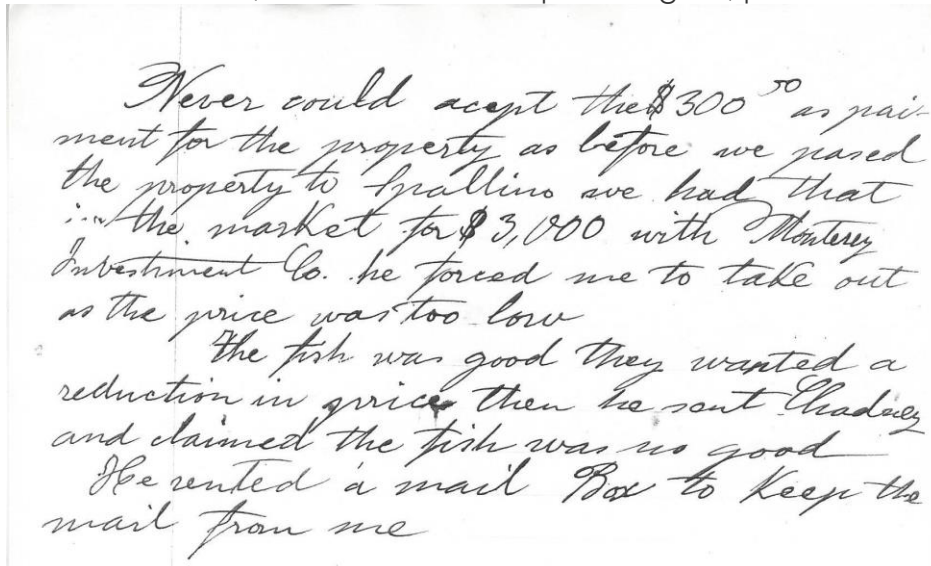 Never could acept the $300 50 as pai-
ment for the property as before we pased
the property to Spallino we had that
in the market for $3,000 with Monterey
Inbestment Co. he forced me to take out
as the price was too low
The fish was good they wanted a
reduction in price then he sent Chadney
and claimed the fish was no good
He rented a mail Box to Keep the
mail from me